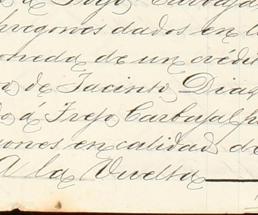 a Trejo Carbajal
pregones dados en l
oneda de un crédi
o de Jacinto Diaz
do á Trejo Carbajal p
ones en calidad de
A la Vuelta